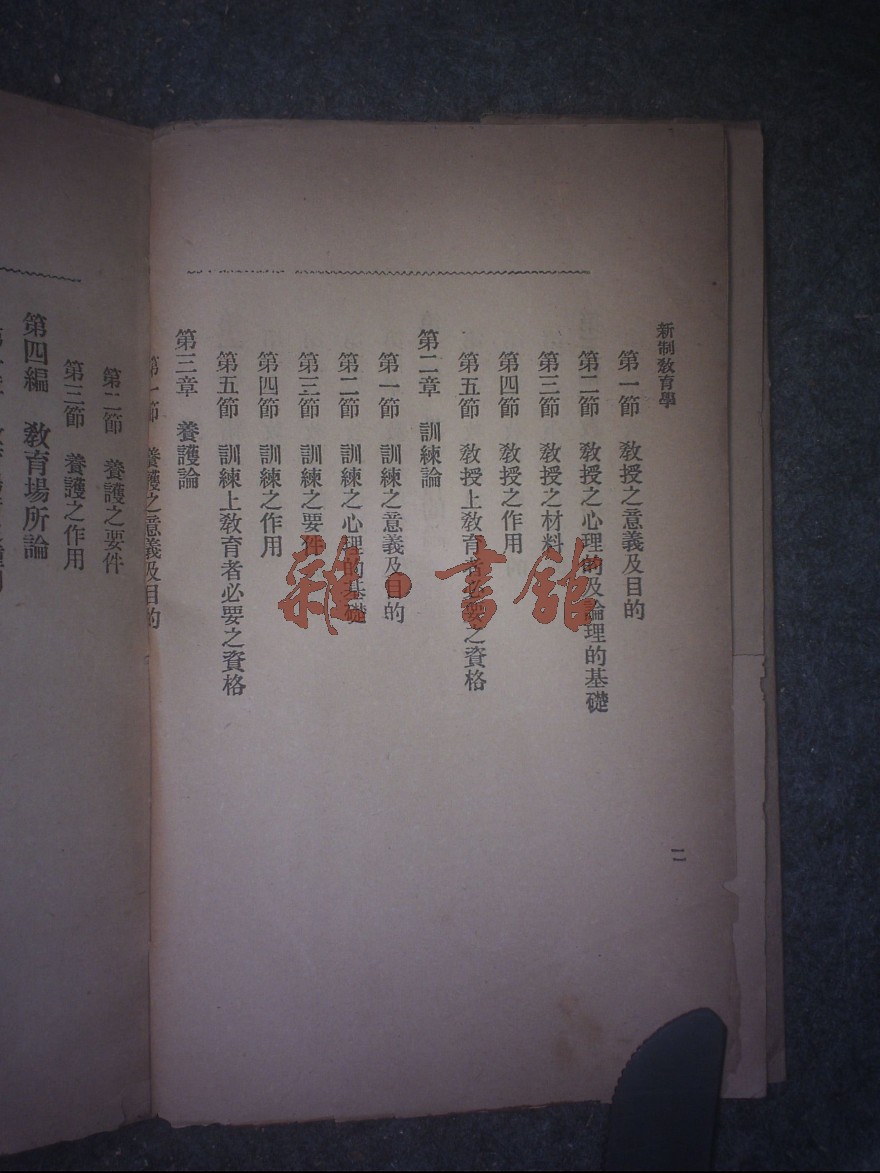 新制教育學
第一節 教授之意義及目的
第二節 教授之心理的及論理的基礎
第三節 教授之材料
第四節 教授之作用
第五節 教授上教育者必要之資格
第二章 訓練論
第一節 訓練之意義及目的
第二節 訓練之心理的基礎
第三節 訓練之要件
第四節 訓練之作用
第五節 訓練上教育者必要之資格
第三章 養護論
第一節 養護之意義及目的
二
第二節 養護之要件
第三節 養護之作用
第四編 教育場所論
雜·書館